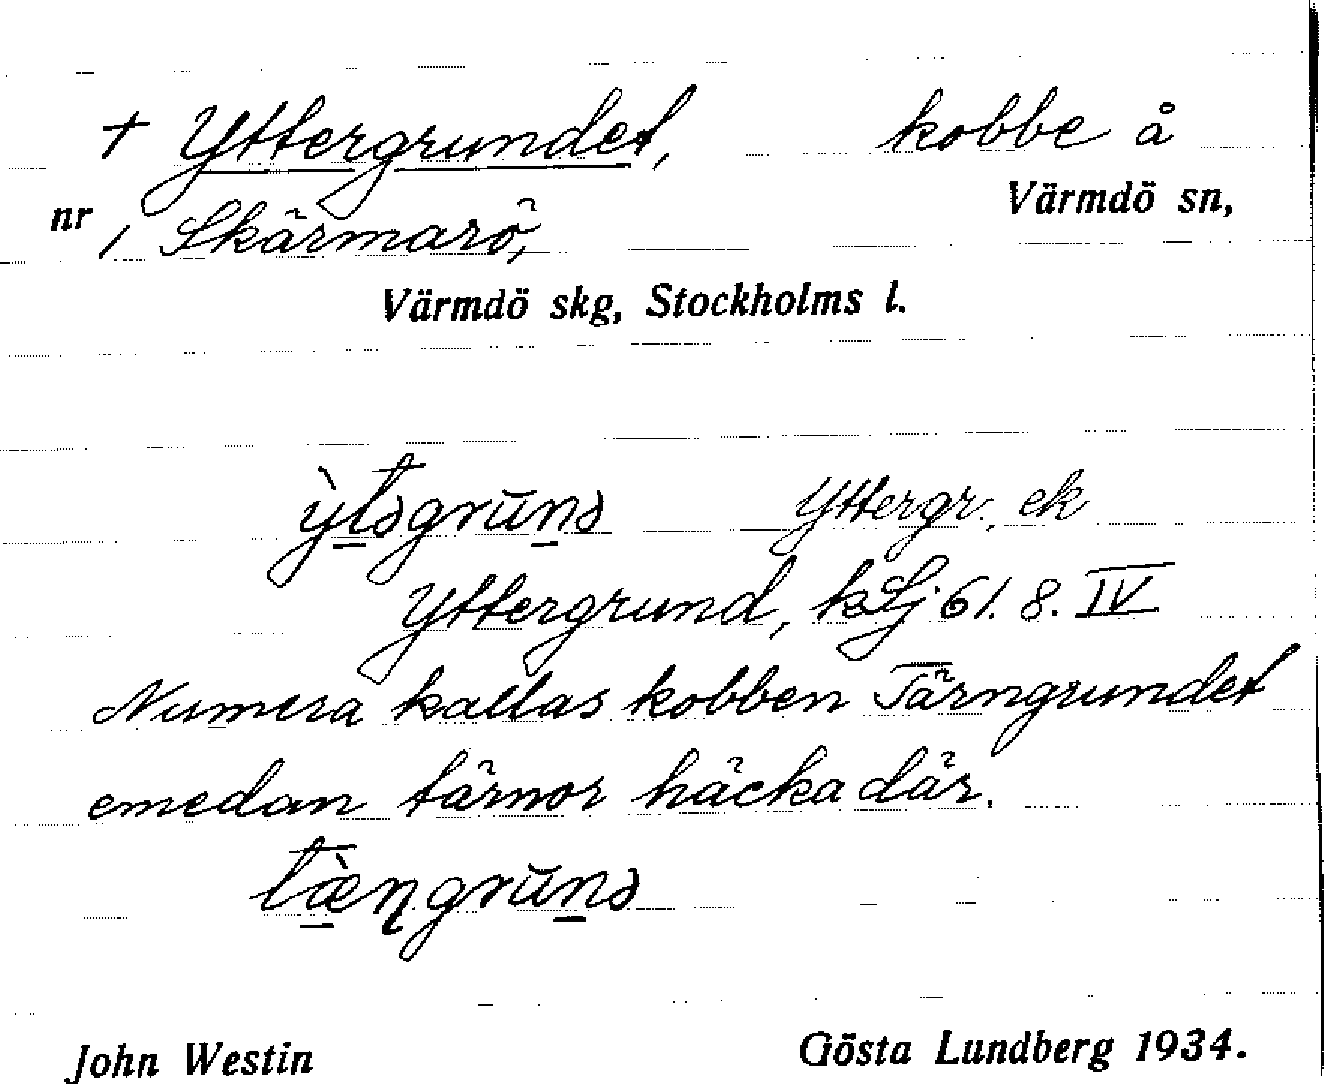 + Yttergrundet, kobbe å
nr 1 Skärmarö, Värmdö sn,
Värmdö skg, Stockholms l.
ỳtəgrūnə Yttergr., ek
Yttergrund, kLj 61. 8. IV
Numera kallas kobben Tärngrundet
emedan tärnor häcka där.
tæ̀ɳgrūnə
John Westin Gösta Lundberg 1934.